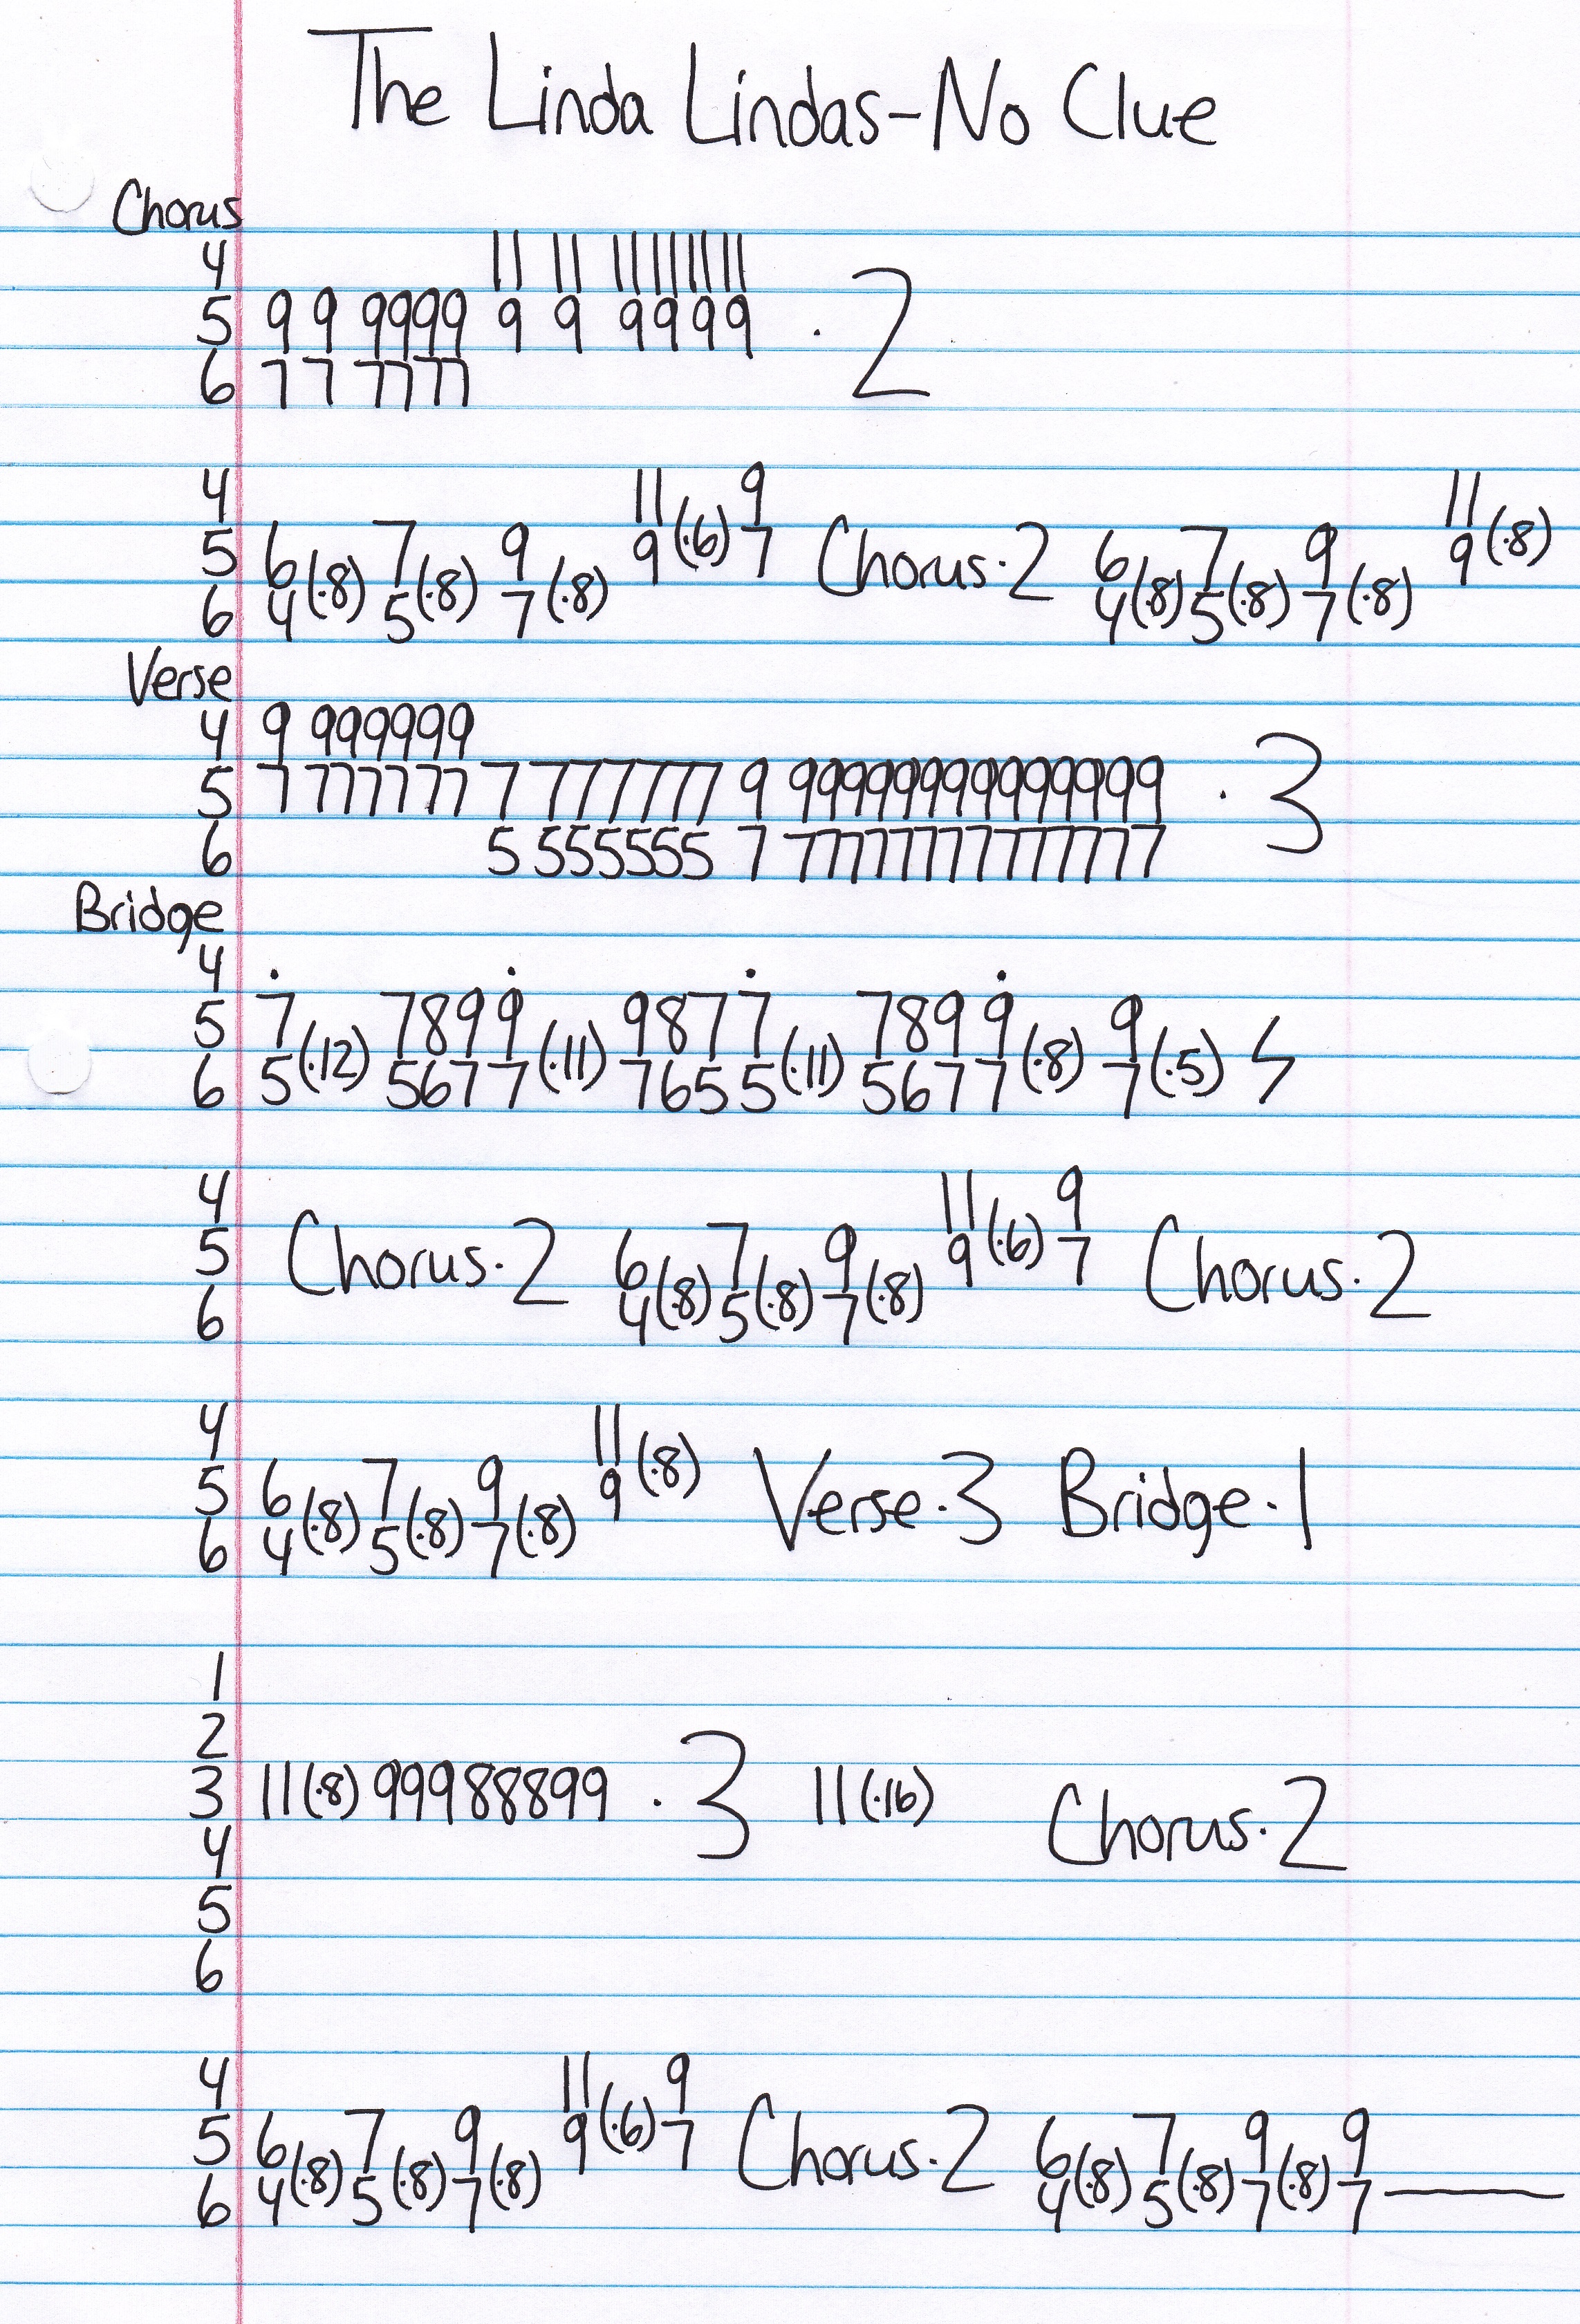 The Linda Lindas-No Clue
Chorus
4 11 11 11 11 11 11
5 9 9 9999 9 9 9999 ·2
6 77 7777
4 11(·6) 9 11(·8)
5 6(·8) 7(·8) 9(·8) 9 7 Chorus·2 6(·8) 7(·8) 9(·8) 9
6 4 5 7 4 5 7
Verse
4 9 999999
5 7 777777 7 777777 9 99999999999999 ·3
6 5 555555 7 77777777777777
Bridge
4
5 7 789 9 987 7 789 9 9
6 5(·12) 567 7(·11) 765 5(·11) 567 7(·8) 7(·5)
4 11(·6) 9
5 Chorus·2 6(·8) 7(·8) 9(·8) 9 7 Chorus·2
6 4 5 7
4 11(·8)
5 6(·8) 7(·8) 9(·8) 9 Verse·3 Bridge·1
6 4 5 7
1
2
3 11(·8) 99988899 ·3 11(·16) Chorus·2
4
5
6
4 11(·6) 9
5 6(·8) 7(·8) 9(·8) 9 7 Chorus·2 6(·8) 7(·8) 9(·8) 9
6 4 5 7 4 5 7 7